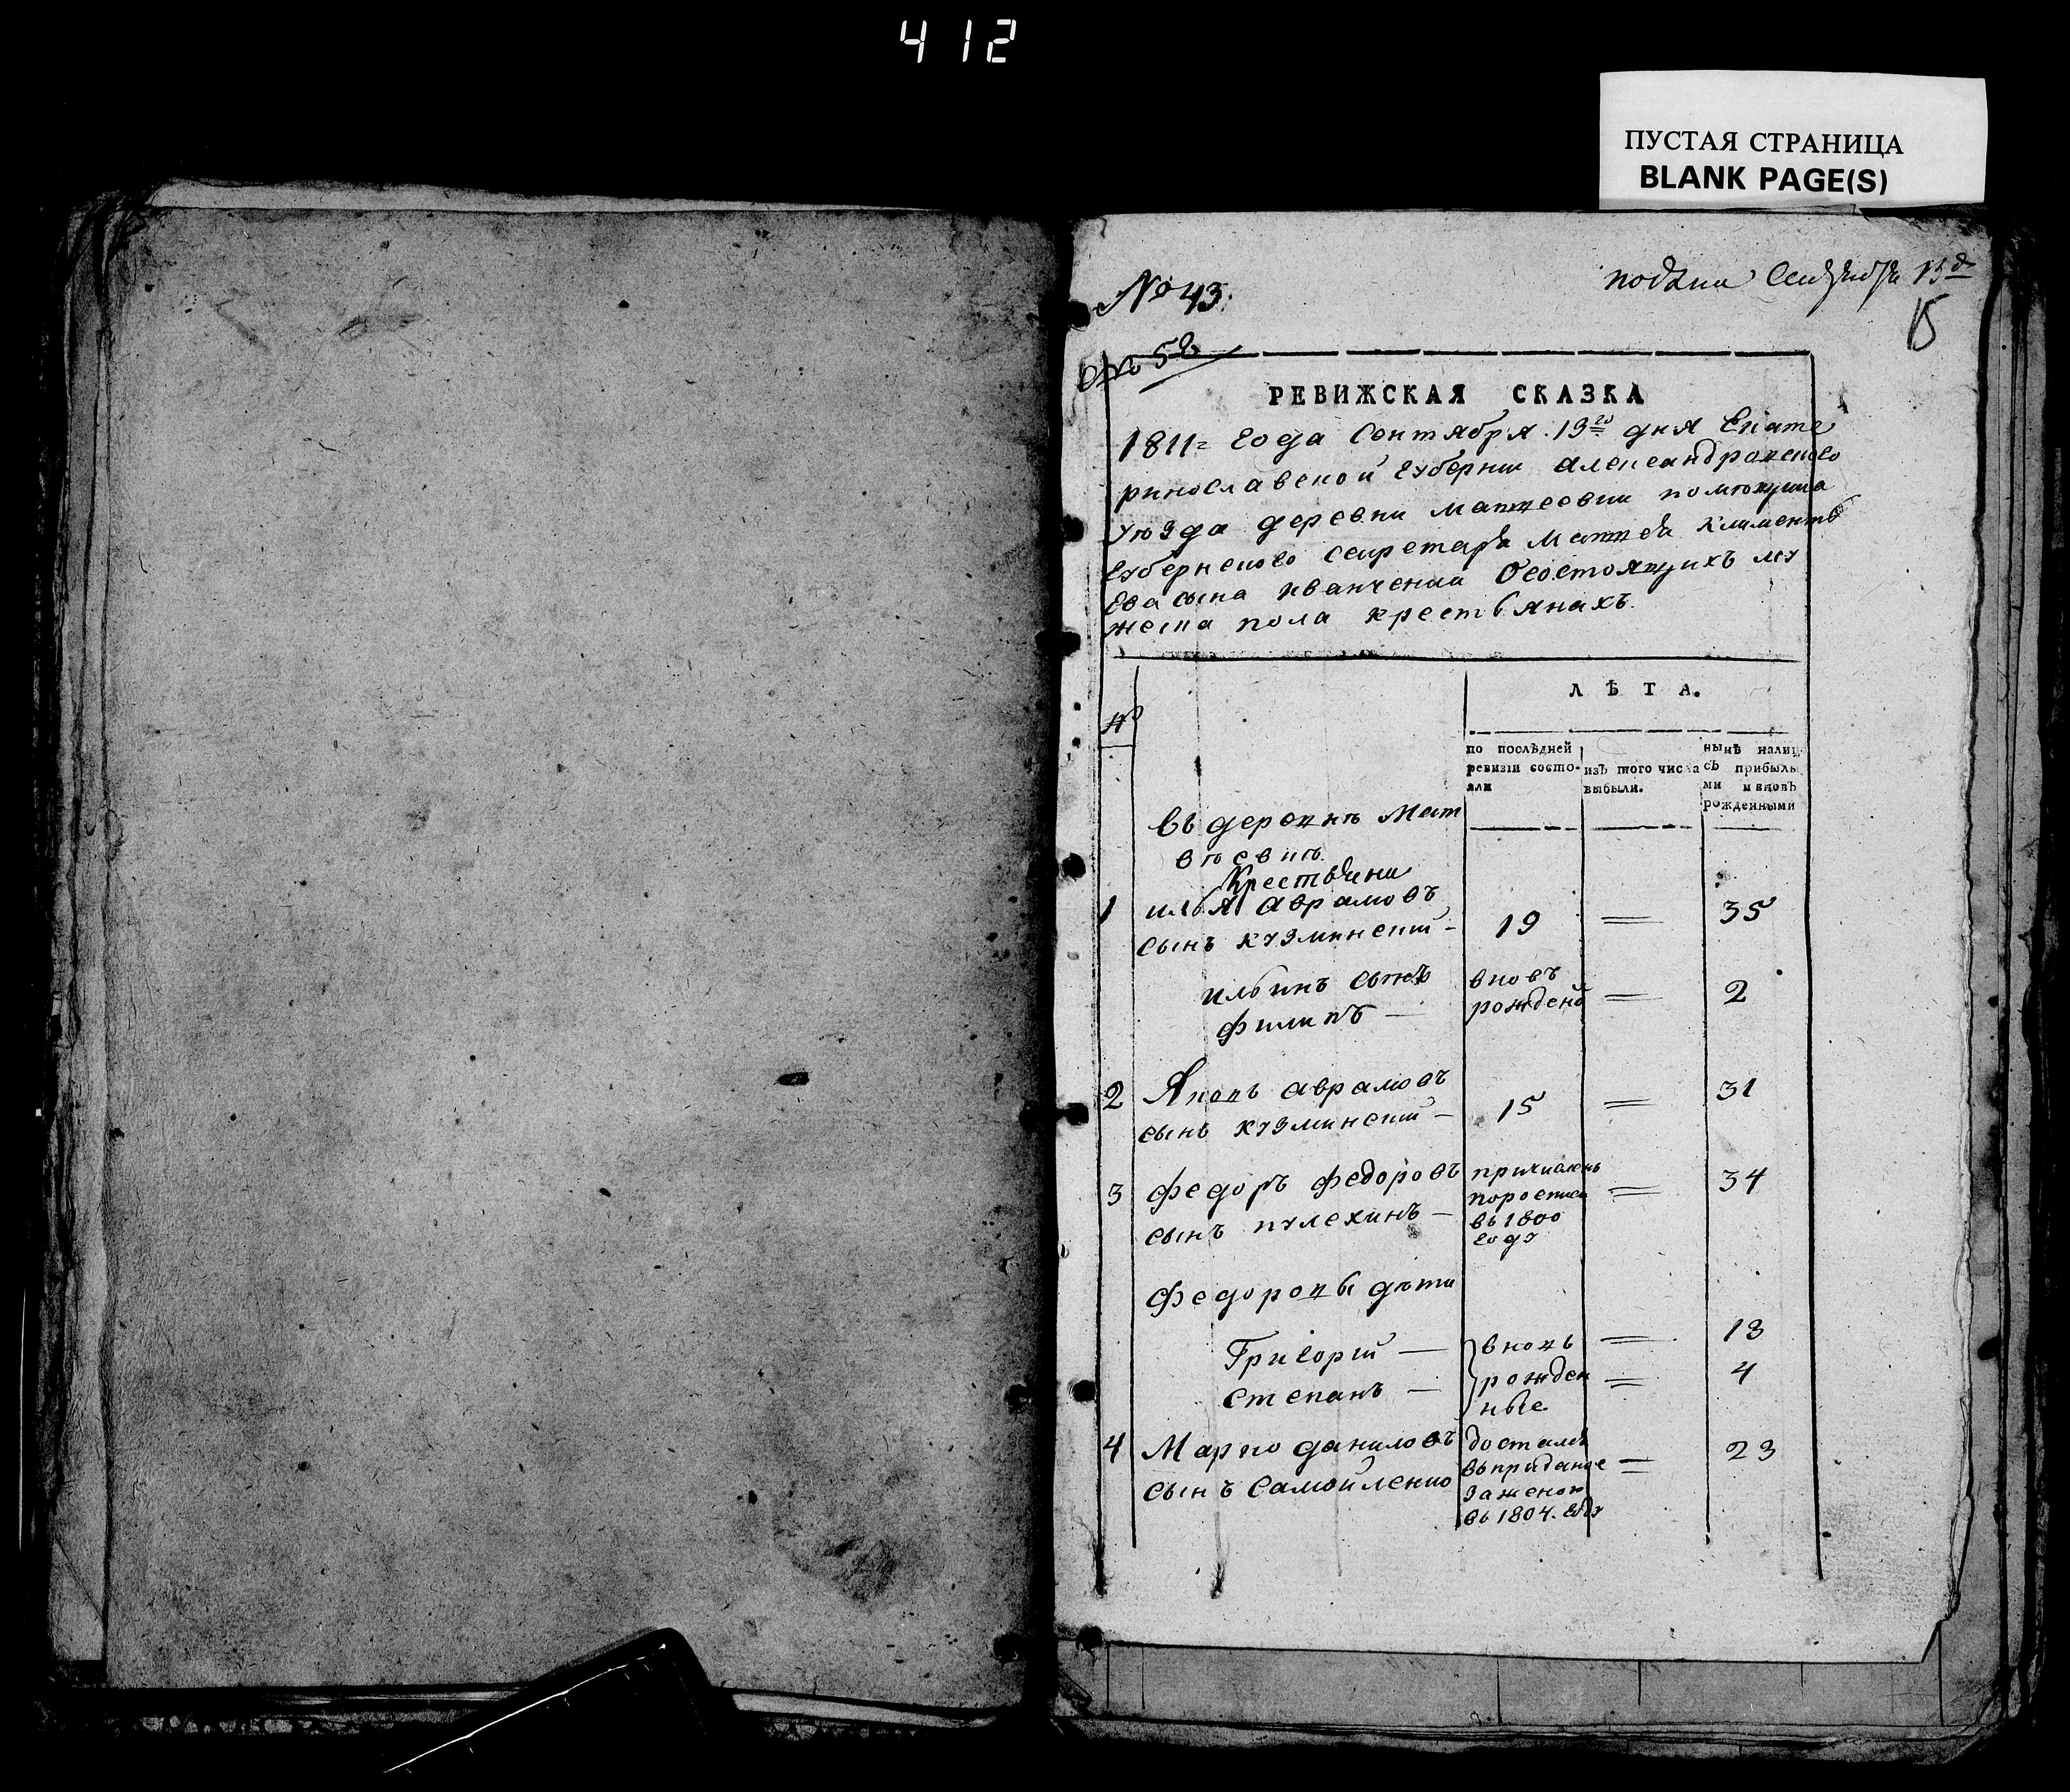 412
ПУСТАЯ СТРАНИЦА
BLANK PAGE(S)
подана Сентября 13д
15
№ 43.
РЕВИЖСКАЯ СКАЗКА
1811= года Сентября .13го дня Екате
ринославской губернии александровского
уѣзда деревни матвеевки помѣщика
губернского секретаря матвея клименть
ева сына иванченка Осостоящихъ му
жеска пола крестьянахъ.
№
ЛѢТА.
по послѣдней
ревизіи состо-
яли
изъ того числа
выбыли.
нынѣ налиц.
съ прибыль
ми и вновь
рожденными
въ деревнѣ Мат
вѣевкѣ
Крестьяни
1 илья аврамовъ
сынъ кузминский - 19 = 35
ильинъ сынъ вновъ
филипъ — рожденъ = 2
2 Яковъ аврамовъ
сынъ кузминский — 15 = 31
3 федоръ федоровъ причислень = 34
сынъ пулехинъ — поросписи
въ 1800
году
федоровы дѣти
Григорий — вновь = 13
степанъ — рожден = 4
ные
4 Марко даниловъ досталъ = 23
сынъ самойленко въприданое
заженою
въ 1804. году